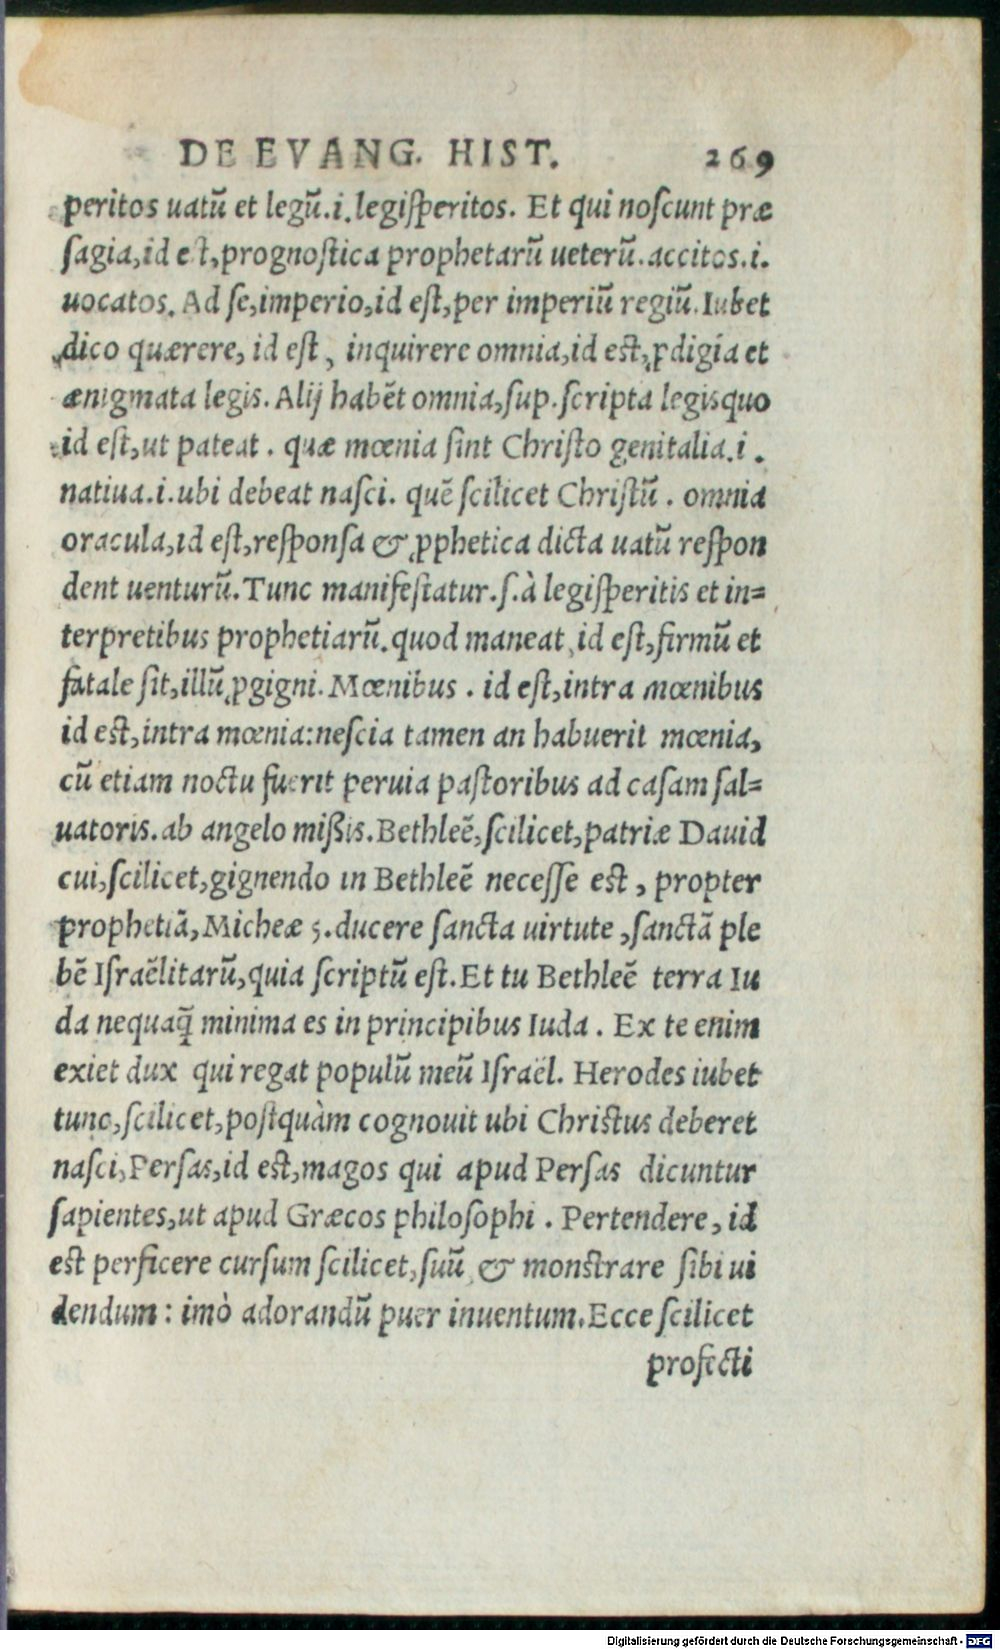 DE EVANG. HIST. 269
peritos uatū et legū.i.legiſperitos. Et qui noſcunt præ
ſagia,id eſt,prognoſtica prophetarū ueterū.accitos.i.
uocatos. Ad ſe,imperio,id eſt,per imperiū regiū.Iubet
dico quærere, id eſt, inquirere omnia,id eſt,ꝓdigia et
ænigmata legis. Alij habēt omnia,ſup.ſcripta legisquo
id eſt,ut pateat. quæ mœnia ſint Chriſto genitalia.i.
natiua.i.ubi debeat naſci. quē ſcilicet Chriſtū. omnia
oracula,id eſt,reſponſa & ꝓphetica dicta uatū reſpon
dent uenturū.Tunc manifeſtatur.ſ.à legiſperitis et in=
terpretibus prophetiarū.quod maneat,id eſt,firmū et
fatale ſit,illū ꝓgigni. Mœnibus. id eſt,intra mœnibus
id eſt,intra mœnia:neſcia tamen an habuerit mœnia,
cū etiam noctu fuerit peruia paſtoribus ad caſam ſal=
uatoris.ab angelo mißis.Bethleē,ſcilicet,patriæ Dauid
cui,ſcilicet,gignendo in Bethleē neceſſe eſt, propter
prophetiā,Micheæ 5.ducere ſancta uirtute,ſanctā ple
bē Iſraëlitarū,quia ſcriptū eſt.Et tu Bethleē terra Iu
da nequaq̃ minima es in principibus Iuda. Ex te enim
exiet dux qui regat populū meū Iſraël. Herodes iubet
tunc,ſcilicet,poſtquàm cognouit ubi Chriſtus deberet
naſci,Perſas,id eſt,magos qui apud Perſas dicuntur
ſapientes,ut apud Græcos philoſophi. Pertendere, id
eſt perficere curſum ſcilicet,ſuū & monſtrare ſibi ui
dendum: imò adorandū puer inuentum.Ecce ſcilicet
profecti
Digitalisierung gefördert durch die Deutsche Forschungsgemeinschaft - DFG